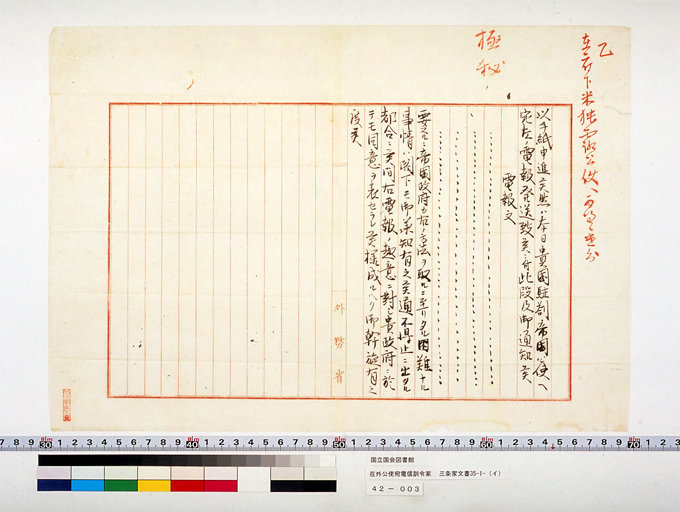 乙
在府下米独露公使ヘ
極秘
以手紙申進候然ハ本日貴国駐剳帝国公使ヘ
宛左ノ電報発送致候ニ付此段及御通知候
電報文
要スルニ帝国政府カ右ノ方法ヲ取ルニ至リタル困難ナル
事情ハ閣下ニモ御承知有之候通不得止ニ出タル
都合ニ候間右電報ノ趣意ニ対シ貴政府ニ於
テモ同意ヲ表セラレ候様成ルヘク御幹旋有之
度候
外務省
国立国会図書館
在外公使宛電信訓令案 三条家文書35-1-(イ)
42-003